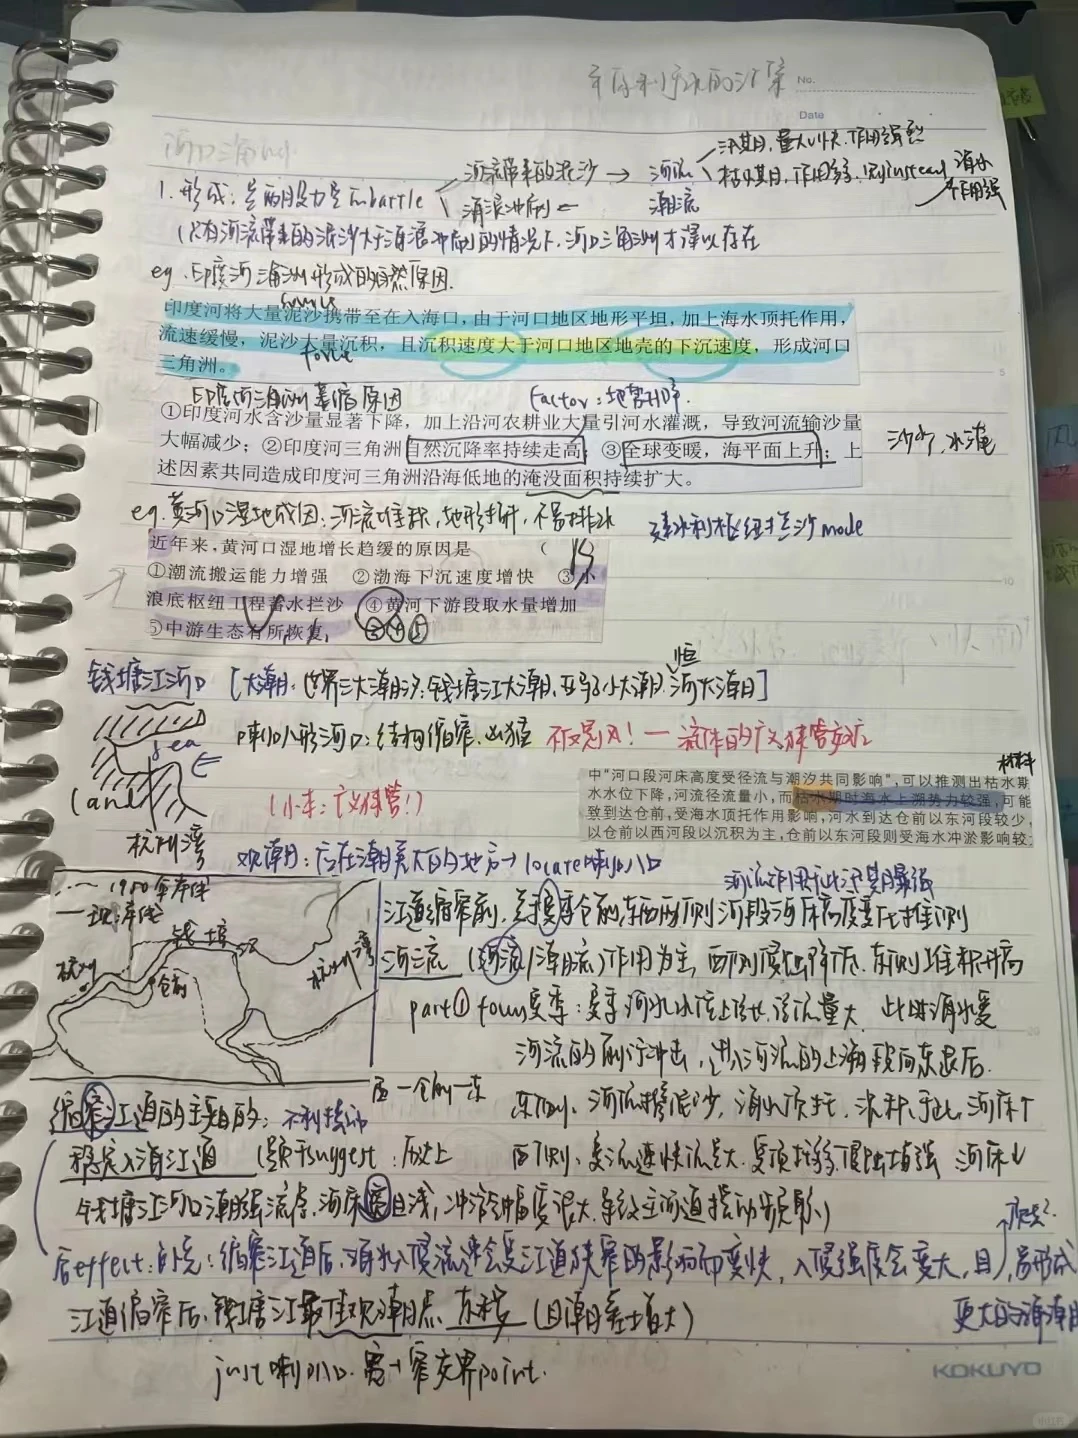 No.
Date
河口三角洲
1.形成:是两股力量in battle
河流带来的泥沙 → 河流
海浪冲刷 ← 潮流
汛期,量大水快,作用强烈
枯水期,作用弱,则instead 海水作用强
(只有河流带来的泥沙大于海浪冲刷的情况下,河口三角洲才得以存在
eg.印度河三角洲形成的自然原因.
印度河将大量泥沙携带至在入海口,由于河口地区地形平坦,加上海水顶托作用,
流速缓慢,泥沙大量沉积,且沉积速度大于河口地区地壳的下沉速度,形成河口
三角洲。
force
印度河三角洲萎缩原因
factor:地势升降.
①印度河水含沙量显著下降,加上沿河农耕业大量引河水灌溉,导致河流输沙量
大幅减少;②印度河三角洲自然沉降率持续走高;③全球变暖,海平面上升;上
述因素共同造成印度河三角洲沿海低地的淹没面积持续扩大。
沙少,水淹
eg.黄河口湿地成因:河流堆积,地形平坦,不易排水
建水利枢纽拦沙mode
近年来,黄河口湿地增长趋缓的原因是 (
①潮流搬运能力增强 ②渤海下沉速度增快 ③小
浪底枢纽工程蓄水拦沙 ④黄河下游段取水量增加
⑤中游生态有所恢复
③④⑤
钱塘江河口 [大潮.世界三大潮汐:钱塘江大潮,亚马孙大潮,恒河大潮]
喇叭形河口:结构缩窄
sea
land
杭州湾
中“河口段河床高度受径流与潮汐共同影响”,可以推测出枯水期
水水位下降,河流径流量小,而枯水期时海水上溯势力较强,可能
致到达仓前,受海水顶托作用影响,河水到达仓前以东河段较少,
以仓前以西河段以沉积为主,仓前以东河段则受海水冲淤影响较
材料
观潮:应在潮差大的地方→locate喇叭口
河流作用于此汛期最强
现岸线
钱塘江
杭州
仓前
杭州湾
江道缩窄前,夏季仓前东西两侧河段河床高度变化推测
河流 (河流/潮流)作用为主,西侧侵蚀降低.东侧堆积升高
part① focus夏季:夏季河水水位上涨,径流量大,此时海水受
河流的前行冲击,进入河流的上溯段向东退后.
西—仓前—东
东侧:河流携泥沙,海水顶托,沉积于此,河床↑
缩窄江道的主要目的:不利摆动
稳定入海江道 (题干suggest:历史上
钱塘江河口潮强流急,河床宽且浅,冲淤幅度很大,导致主河道摆动频繁)
后effect:补充:缩窄江道后,海水入侵流速会受江道狭窄的影响而变快,入侵强度会变大,且易形成
更大的涌潮
江道缩窄后,钱塘江最佳观潮点 东移 (且潮差增大)
just喇叭口.宽→窄交界point.
KOKUYO
小红书